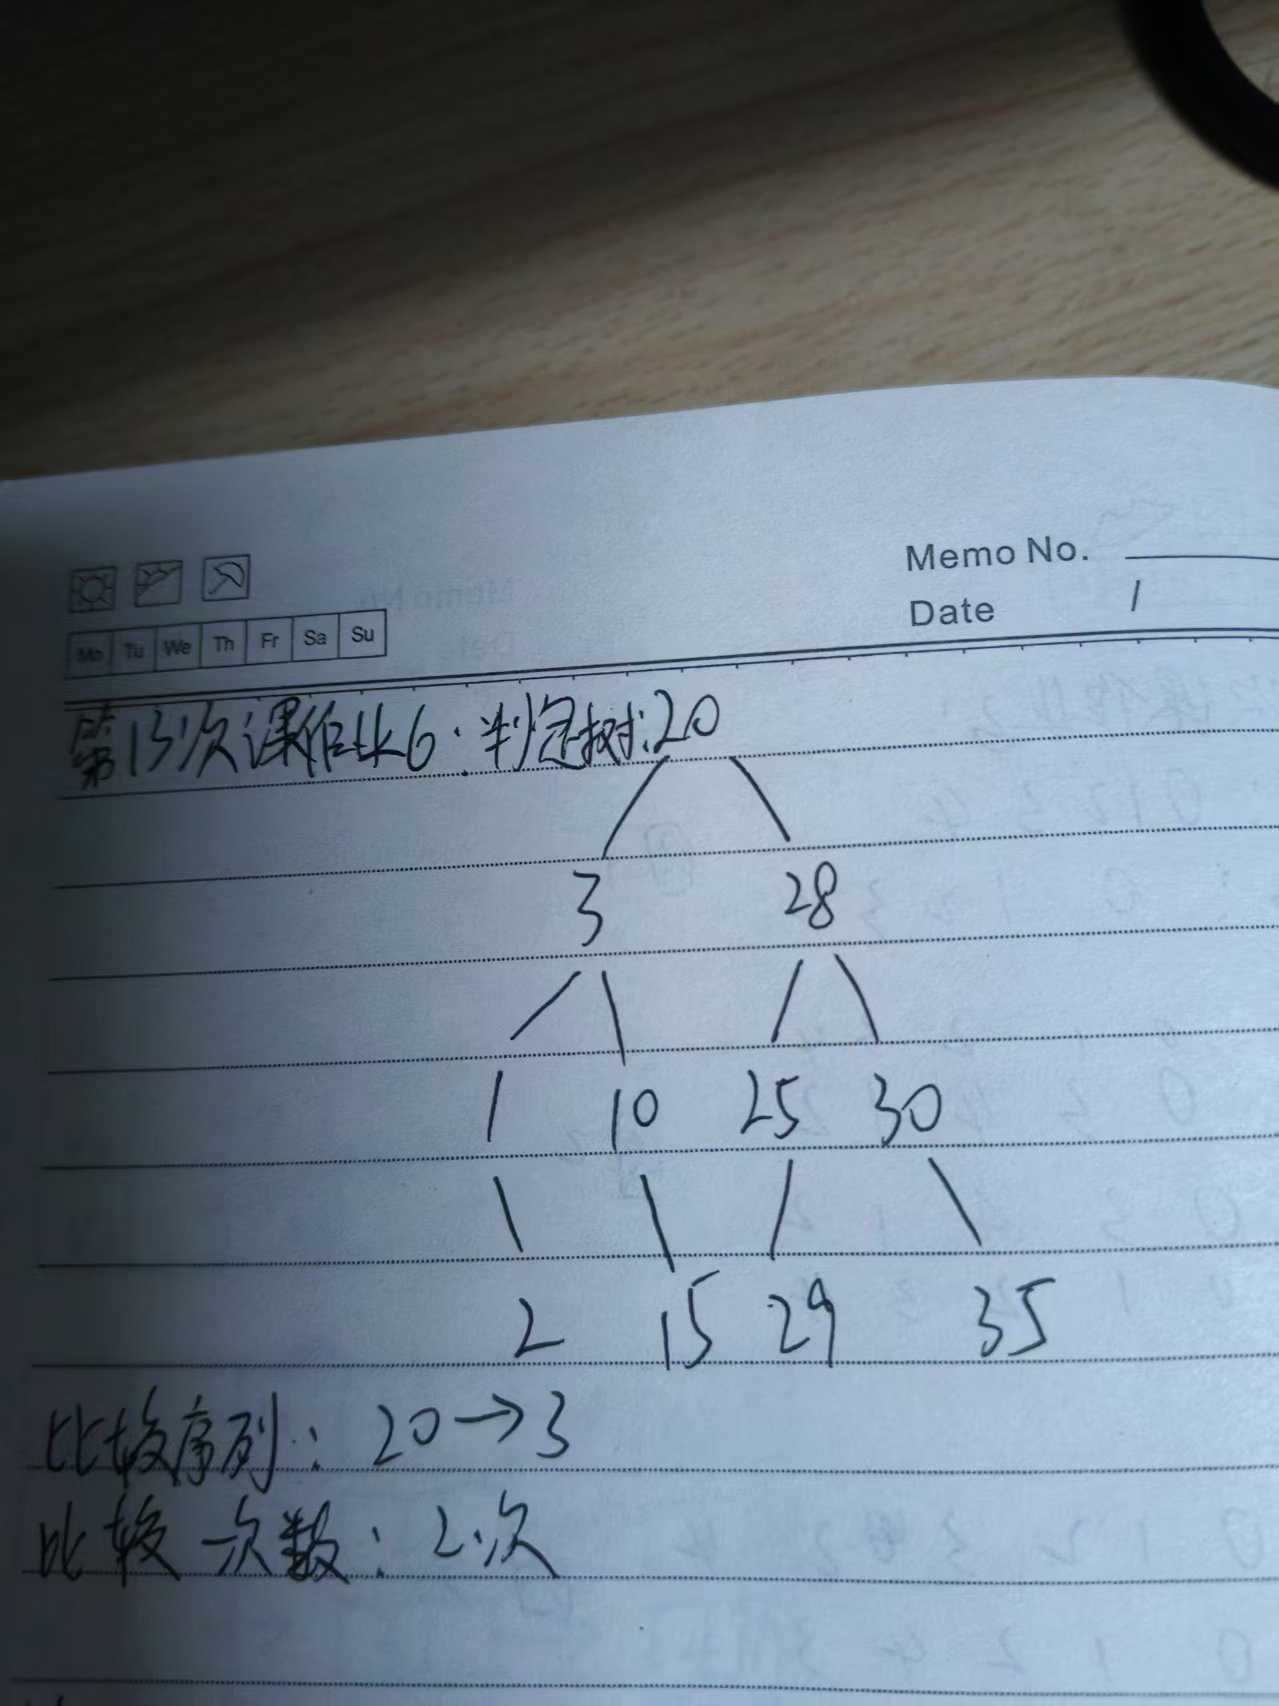 Memo No.
Date /
Mo Tu We Th Fr Sa Su
第13次课作业6：判定树：20
3 28
1 10 25 30
2 15 29 35
比较序列：20→3
比较次数：2次